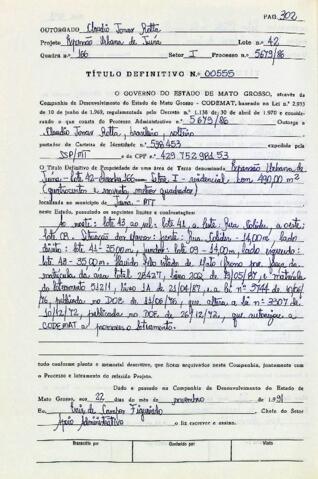 PAG. 302
OUTORGADO Claudio Jonas Rotta
Projeto Expansão Urbana de Juína Lote n.º 42
Quadra n.º 166 Setor I Processo n.º 5679/86
TÍTULO DEFINITIVO N.º 00555
O GOVERNO DO ESTADO DE MATO GROSSO, através da
Companhia de Desenvolvimento do Estado de Mato Grosso - CODEMAT, baseado na Lei n.º 2.933
de 10 de junho de 1969, regulamentada pelo Decreto n.º 1.138 de 30 de abril de 1970 e considerando
o que consta do Processo Administrativo n.º 5679/86 Outorga a
Claudio Jonas Rotta, brasileiro, solteiro
portador da Carteira de Identidade n.º 598453
SSP/MT e do CPF n.º 429752981 53
O Título Definitivo de Propriedade de uma área de Terra denominada Expansão Urbana de
Juína - Lote 42 - Quadra 166 - Setor I - residencial, com 490,00 m²
(quatrocentos e noventa metros quadrados)
localizada no município de Juína - MT
neste Estado, passando os seguintes limites e confrontações:
Ao norte: lote 43, ao sul: lote 41, a leste: Rua
lote 09. Situação dos lados: frente: Rua - 14,00m, lado
direito: lote 41 - 35,00m, fundos: lote 09 - 14,00m, lado esquerdo:
lote 43 - 35,00m.
matrícula da área total 28427, livro 202, 19/05/87, e matrícula
do loteamento 512/1, livro 1A de 21/04/87, e a lei nº 3744 de 10/06/
76, publicada no DOE de 14/06/76, que altera a lei nº 3307 de
18/12/72, publicada no DOE de 26/12/72, que autoriza a
CODEMAT a promover o loteamento.
tudo conforme planta e memorial descritivo, que ficam arquivados nesta Companhia, juntamente com
o Processo e loteamento do referido Projeto.
Dado e passado na Companhia de Desenvolvimento do Estado de
Mato Grosso, aos 22 dias do mês de novembro de 1991
Eu, de Campos Figueiredo Chefe do Setor
Apoio Administrativo o fiz escrever e assino.
Transcrito por Conferido por Visto